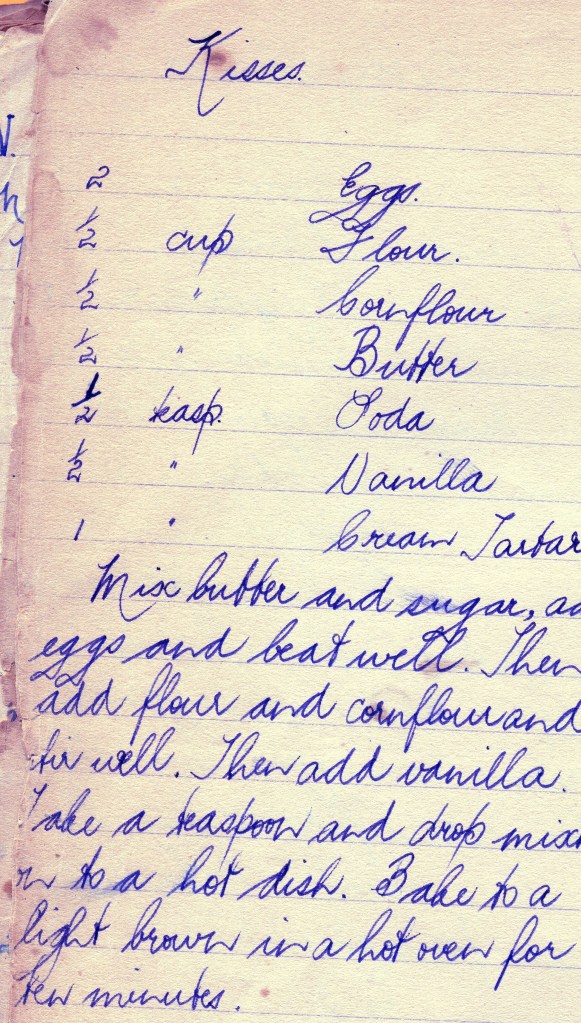 Kisses.
2 Eggs.
1/2 cup Flour.
1/2 " Cornflour
1/2 " Butter
1/2 teasp. Soda
1/2 " Vanilla
1 " Cream Tartar
Mix butter and sugar,
eggs and beat well. Then
add flour and cornflour and
stir well. Then add vanilla.
Take a teaspoon and drop
to a hot dish. Bake to a
light brown in a hot oven for
ten minutes.